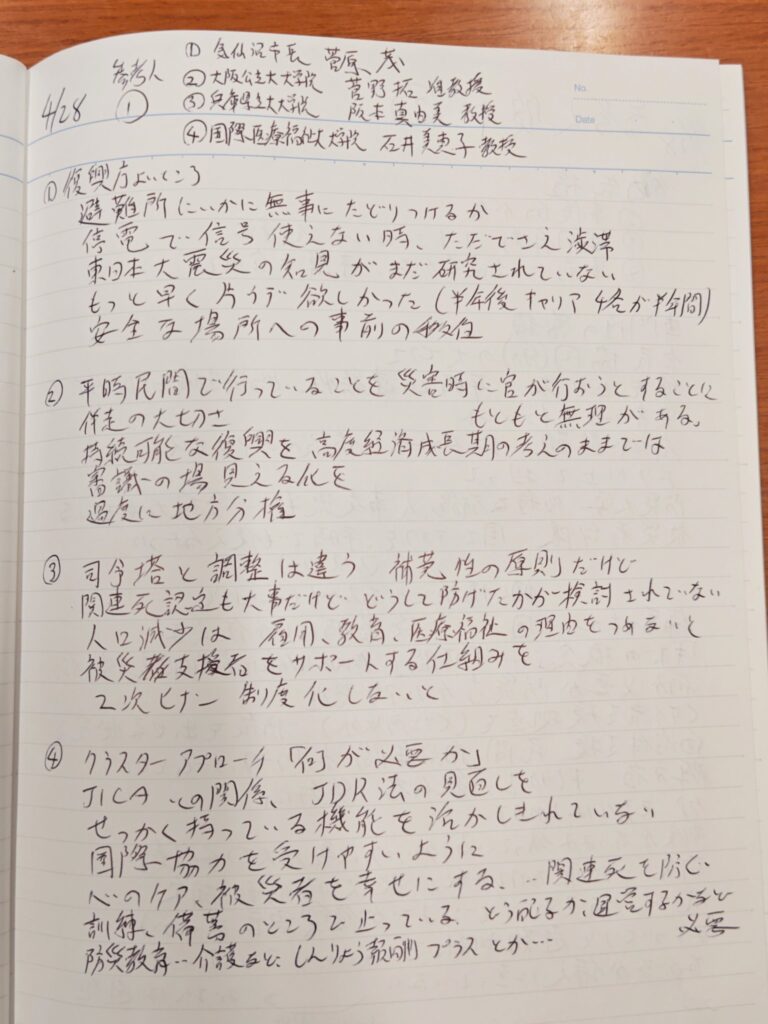 4/28 参考人 ①
① 気仙沼市長 菅原 茂
② 大阪公立大大学院 菅野拓 准教授
③ 兵庫県立大大学院 阪本真由美 教授
④ 国際医療福祉大大学院 石井美恵子 教授
No.
Date
① 復興庁よいところ
避難所にいかに無事にたどりつけるか
停電で信号使えない時、ただでさえ渋滞
東日本大震災の知見がまだ研究されていない
もっと早く片うデ欲しかった (半年後 キャリア 4名が半年間)
安全な場所への事前の移住
② 平時民間で行っていることを災害時に官が行おうとすることに
もともと無理がある。
伴走の大切さ
持続可能な復興を 高度経済成長期の考えのままでは
審議の場見える化を
過度に地方分権
③ 司令塔と調整は違う 補完性の原則だけど
関連死認定も大事だけど どうして防げたかが検討されていない
人口減少は 雇用、教育、医療福祉の理由をつめないと
被災者支援者をサポートする仕組みを
2次ヒナン 制度化しないと
④ クラスターアプローチ「何が必要か」
JICAとの関係、JDR法の見直しを
せっかく持っている機能を活かしきれていない
国際協力を受けやすいように
心のケア、被災者を幸せにする、‥関連死を防ぐ、
訓練、備蓄のところで止っている、どう配るか、運営するかなど
必要
防災教育‥介護など、しんりょう報酬 プラス とか…